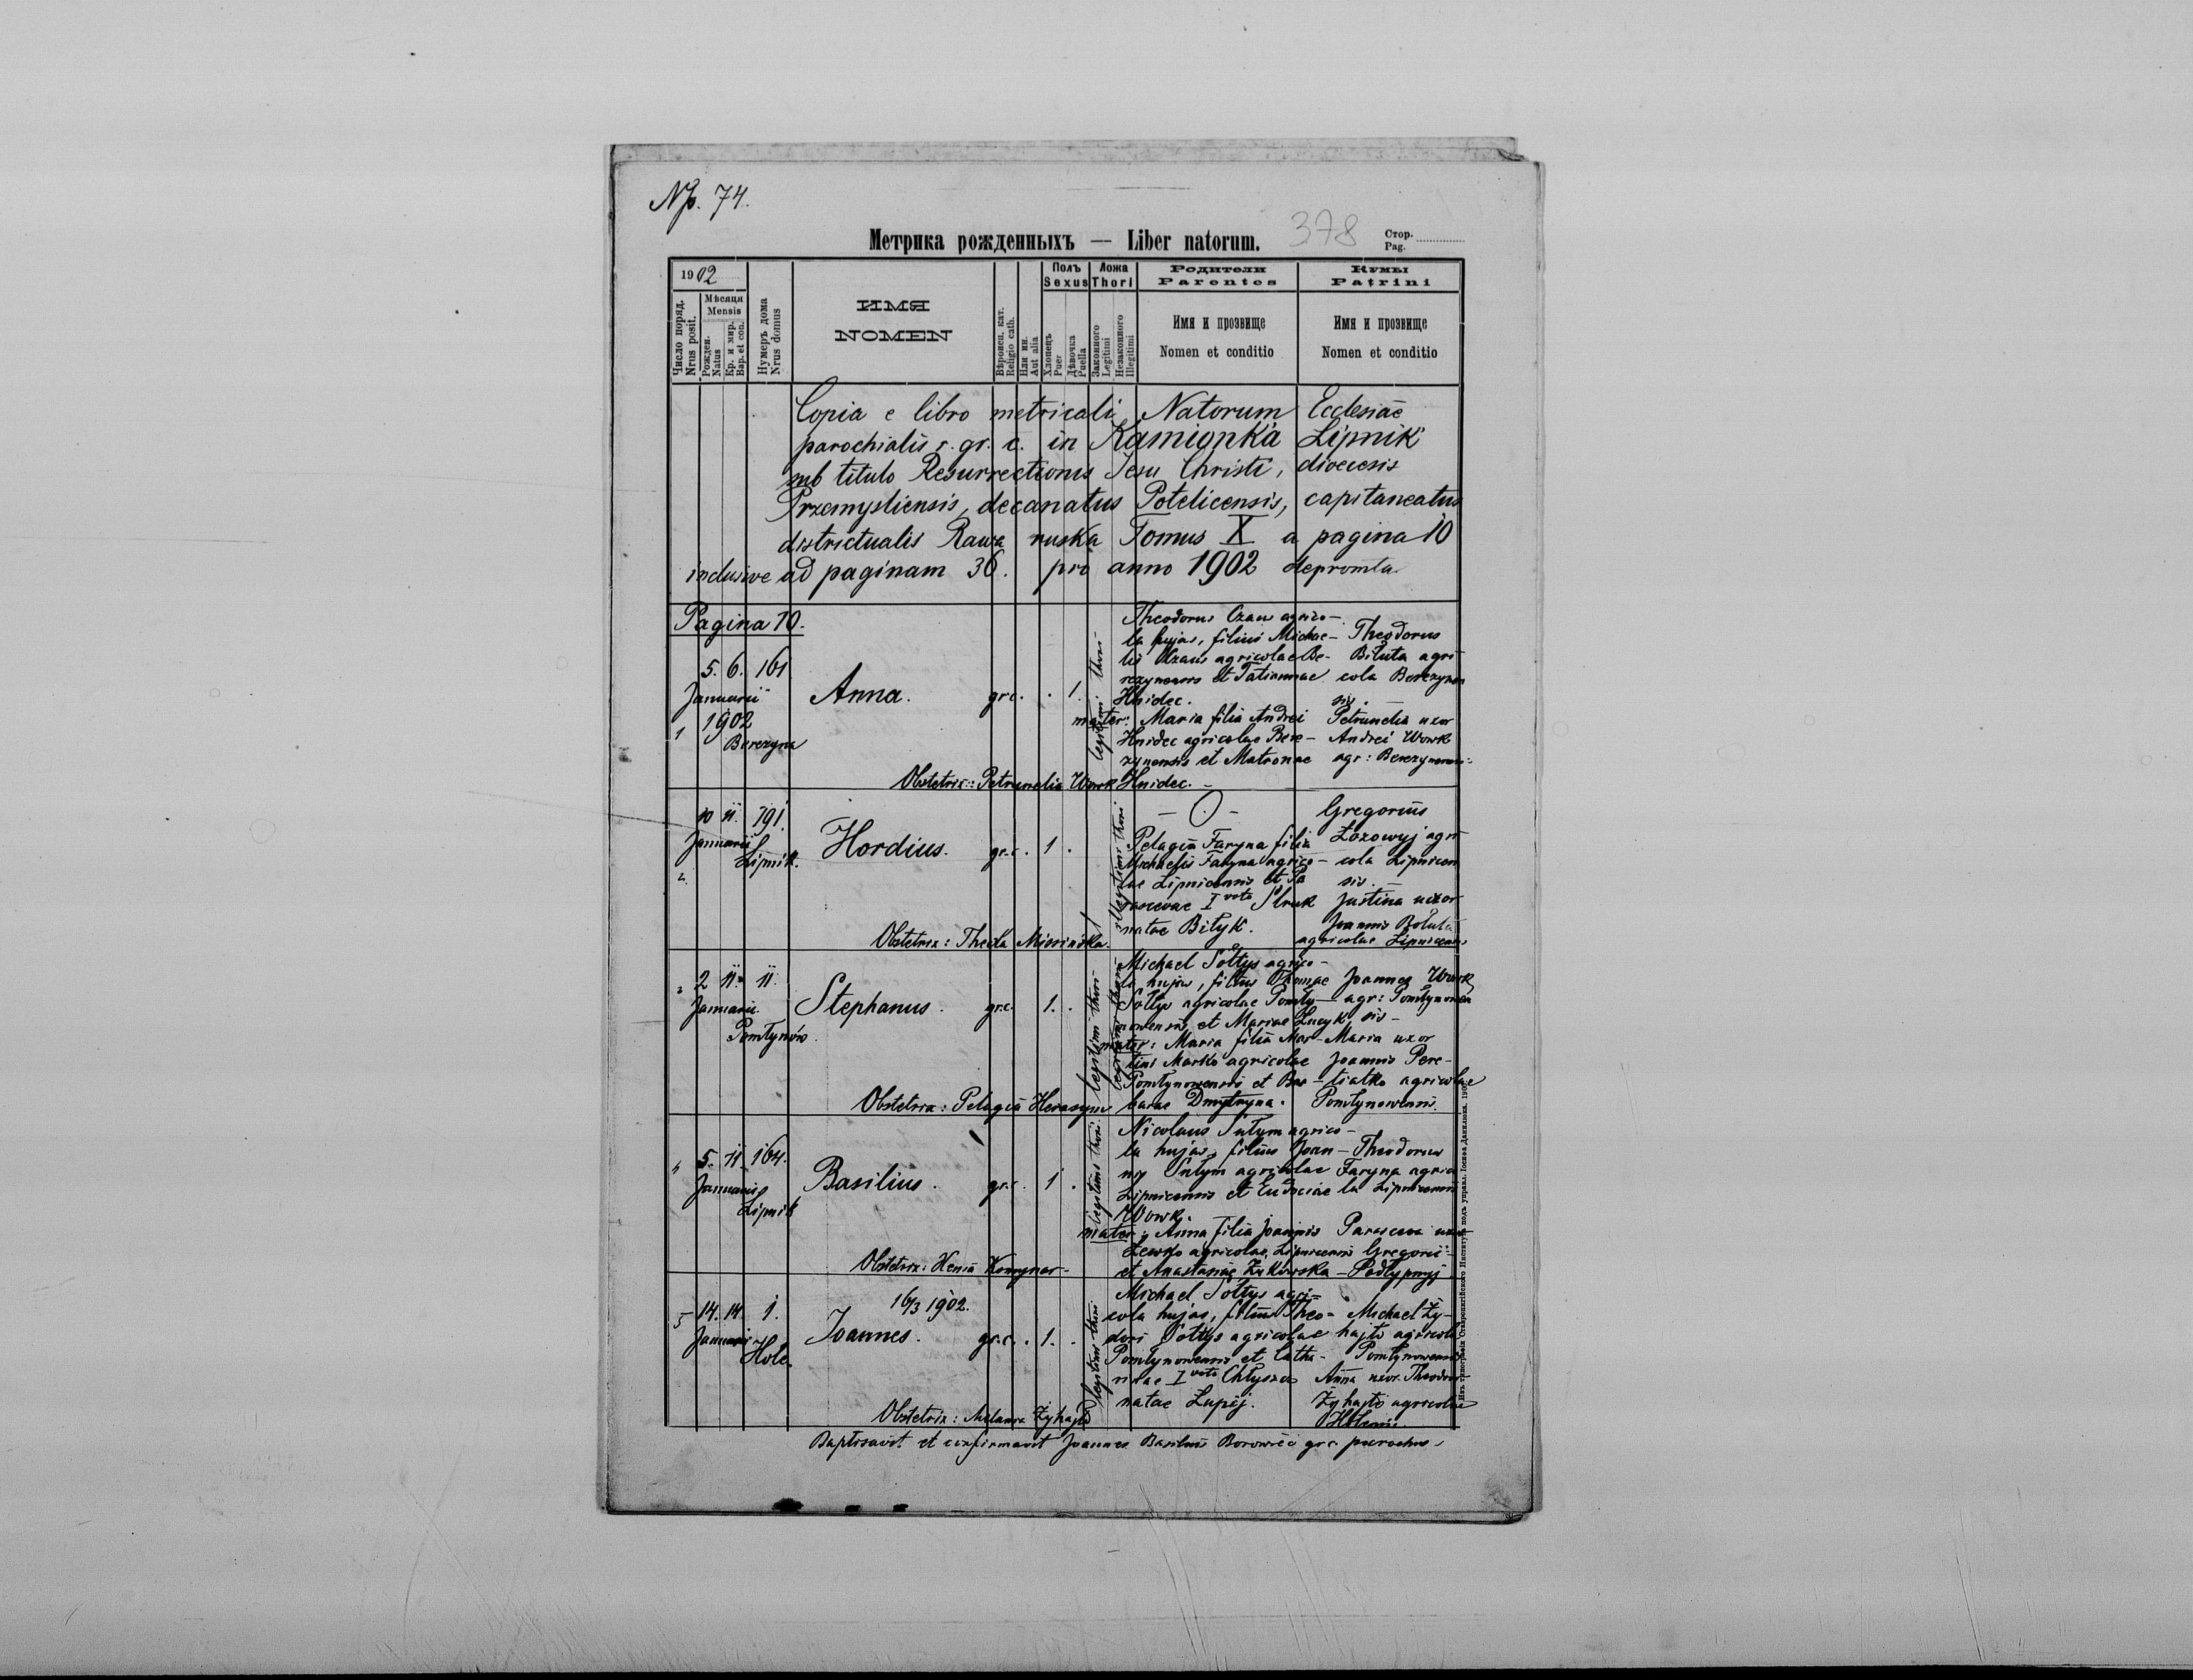 Np. 74.
378
Метрика рожденныхъ — Liber natorum.
Стор.
Pag.
1902
Число поряд.
Nrus posit.
Мѣсяця
Mensis
Рожден.
Natus
Кр. и мир.
Bap. et con.
Нумеръ дома
Nrus domus
ИМЯ
NOMEN
Вѣроисп. кат.
Religio cath.
Или ин.
Aut alia
Полъ
Sexus
Хлопецъ
Puer
Дѣвочка
Puella
Ложа
Thori
Законного
Legitimi
Незаконного
Illegitimi
Родители
Parentes
Имя и прозвище
Nomen et conditio
Кумы
Patrini
Имя и прозвище
Nomen et conditio
Copia e libro metricali Natorum Ecclesiae
parochialis r. gr. c. in Kamionka Lipnik
sub titulo Resurrectionis Jesu Christi, dioecesis
Przemysliensis, decanatus Potelicensis, capitaneatus
districtualis Rawa ruska Tomus X a pagina 10
inclusive ad paginam 36. pro anno 1902 depromta
Pagina 10.
1
5. 6. 161
Januarii
1902
Berezyna
Anna.
gr.c. . 1.
legitimi thori
Theodorus Czaus agrico-
la hujas, filius Michae-
lis Czaus agricolae Be-
rezynensis et Tatiannae
Hnidec.
mater: Maria filia Andrei
Hnidec agricolae Bere-
zynensis et Matronae
Hnidec.
Theodorus
Biłuta agri-
cola Berezynen
sis.
Petrunelia uxor
Andrei Wowk
agr: Berezynensis
Obstetrix: Petrunelia Wowk
2.
10 11. 191.
Januarii
Lipnik.
Hordius.
gr.c. 1 .
illegitimi thori
— 0 —
Pelagia Faryna filia
Michaelis Faryna agrico-
lae Lipnicensis et Pa
rascevae I voto Struk
natae Bityk.
Gregorius
Łozowyj agri
cola Lipnicen
sis.
Justina uxor
Joannis Bołuta
agricolae Lipnicensis
Obstetrix: Thecla
3
2 11. 11.
Januarii.
Pomłynów.
Stephanus.
gr.c. 1. .
legitimi thori
Michael Sołtys agrico-
la hujas, filius Thomae
Sołtys agricolae Pomły-
nowensis et Mariae Łucyk
mater: Maria filia Mar-
tini Marko agricolae
Pomłynowensis et Bar-
barae Dmytryna.
Joannes Wowk
agr: Pomłynowen
sis-
Maria uxor
Joannis Pere-
tiatko agricolae
Pomłynowensis.
Obstetrix: Pelagia Herasym
4
5. 11 164.
Januarii
Lipnik
Basilius.
gr.c. 1 .
legitimi thori.
Nicolaus Sutym agrico-
la hujas, filius Joan-
nis Sutym agricolae
Lipnicensis et Eudociae
Wowk.
mater: Anna filia Joannis
Lewko agricolae Lipnicensis
et Anastasiae Żukowska
Theodorus
Faryna agrico
la Lipnicensis
Parasceva uxor
Gregorii
Podłypnyj
Obstetrix: Xenia Komynar-
5
14. 14 1.
Januarii
Hole.
16/3 1902.
Joannes.
gr.c. . 1. .
legitimi thori
Michael Sołtys agri-
cola hujas, filius Theo-
dori Sołtys agricolae
Pomłynowensis et Catha-
rinae I voto Chłyszcz
natae Łupij.
Michael Ży-
hajło agricola
Pomłynowensis
Anna uxor Theodori
Żyhajło agricolae
Holensis.
Obstetrix: Melania Żyhajło
Baptisavit et confirmavit Joannes Basilius Borowiec gr.c. parochus.